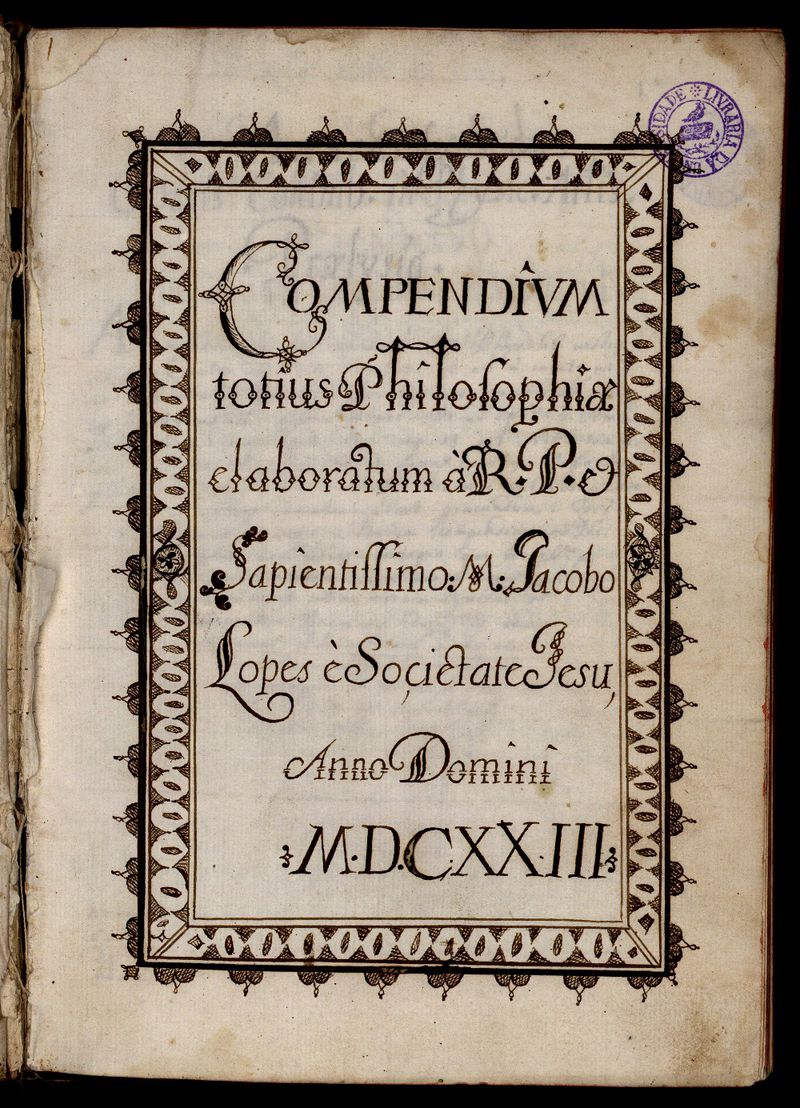 COMPENDIVM
totius Philosophiæ
elaboratum à R. P. &
Sapientissimo: M: Jacobo
Lopes è Societate Jesu,
Anno Domini
M.D.CXX.III
LIVRARIA DA